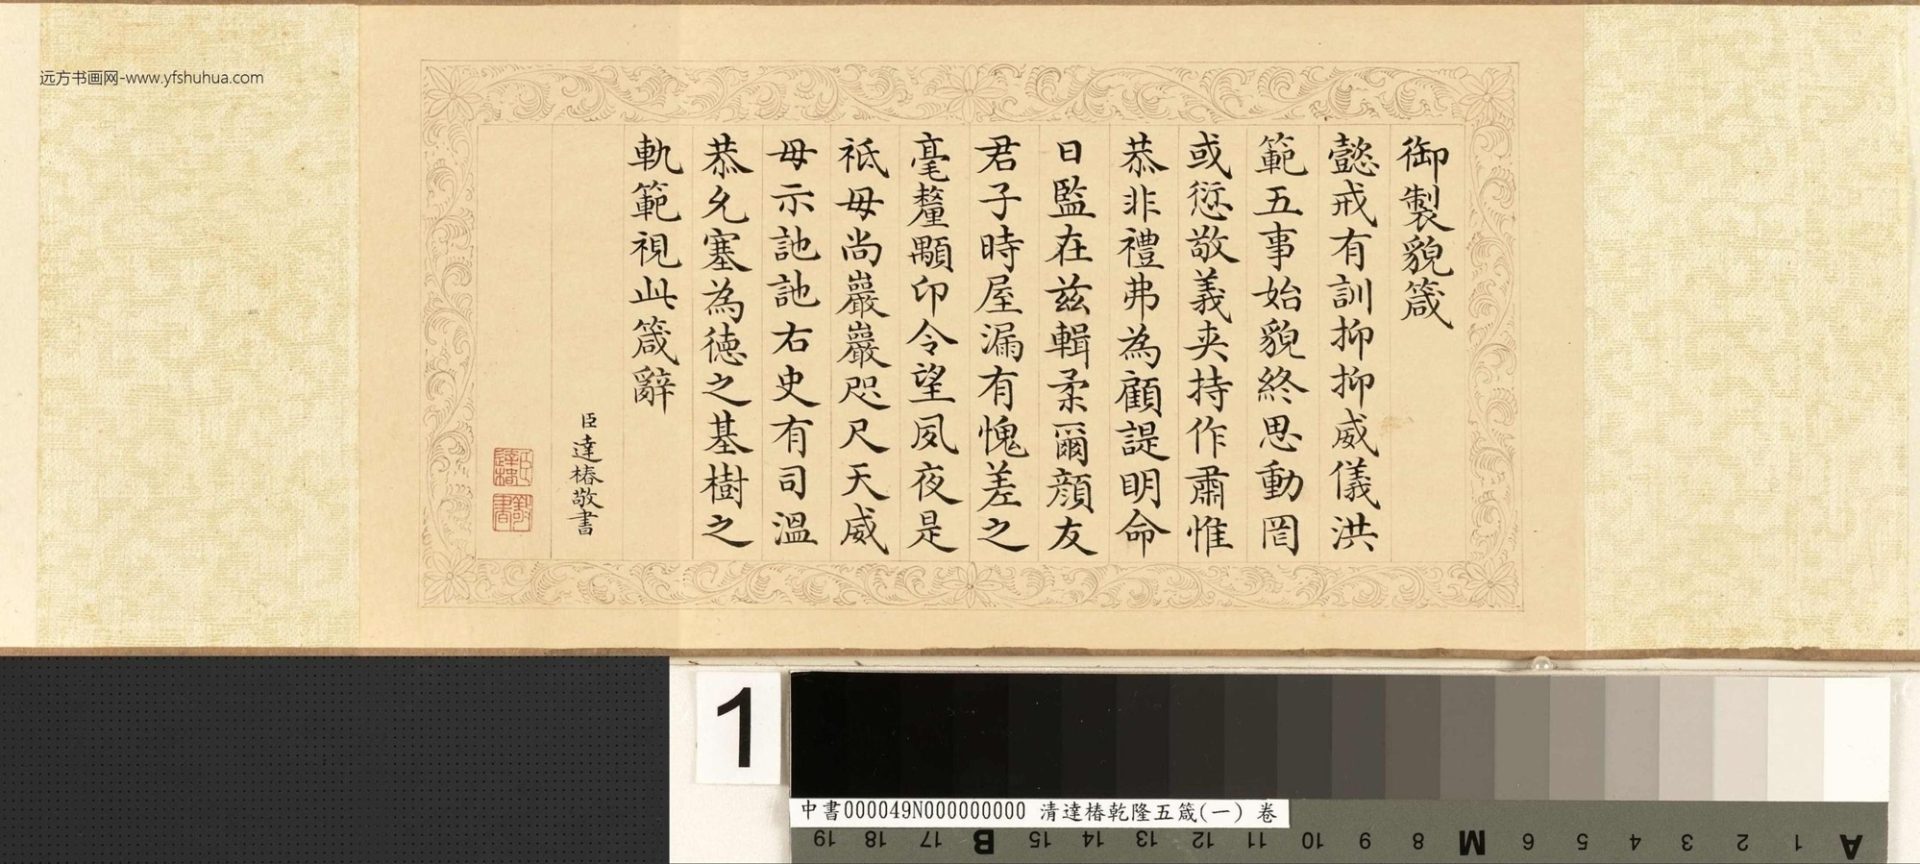 御製貌箴
懿戒有訓抑抑威儀洪
範五事始貌終思動罔
或愆敬義夾持作肅惟
恭非禮弗為顧諟明命
日監在茲輯柔爾顏友
君子時屋漏有愧差之
毫釐顒卬令望夙夜是
祗毋尚巖巖咫尺天威
毋示訑訑右史有司溫
恭允塞為德之基樹之
軌範視此箴辭
臣達椿敬書
远方书画网-www.yfshuhua.com
1
中書000049N000000000 清達椿乾隆五箴(一) 卷
19 18 17 B 15 14 13 12 11 10 9 8 M 6 5 4 3 2 1 A